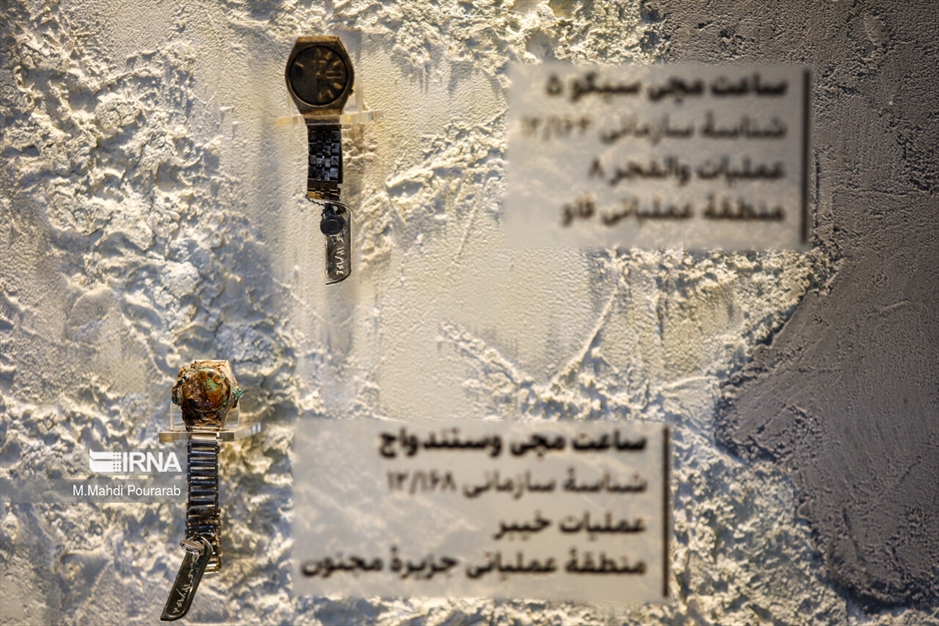 ساعت مچی سیکو ۵
شناسهٔ سازمانی ۱۲/۱۶۴
عملیات والفجر ۸
منطقهٔ عملیاتی فاو
ساعت مچی وستندواچ
شناسهٔ سازمانی ۱۲/۱۶۸
عملیات خیبر
منطقهٔ عملیاتی جزیرهٔ مجنون
IRNA
M.Mahdi Pourarab